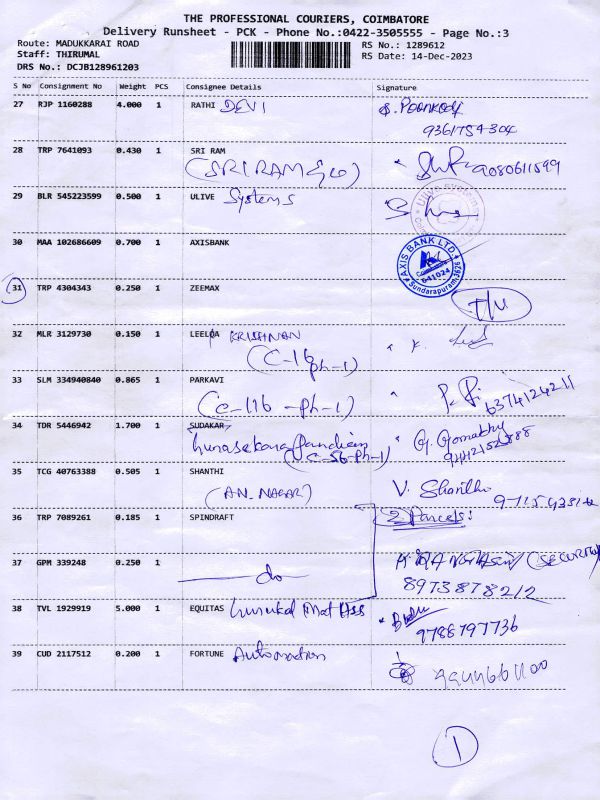 THE PROFESSIONAL COURIERS, COIMBATORE
Delivery Runsheet - PCK - Phone No.:0422-3505555 - Page No.:3
Route: MADUKKARAI ROAD
RS No.: 1289612
Staff: THIRUMAL
RS Date: 14-Dec-2023
DRS No.: DCJB128961203
S No Consignment No Weight PCS Consignee Details Signature
27 RJP 1160288 4.000 1 RATHI DEVI
9361754304
28 TRP 7641093 0.430 1 SRI RAM
(SRI RAM
9080611599
29 BLR 545223599 0.500 1 ULIVE Systems
30 MAA 102686609 0.700 1 AXISBANK
AXIS BANK LTD
Coimbatore
641024
Sundarapuram
31 TRP 4304343 0.250 1 ZEEMAX
32 MLR 3129730 0.150 1 LEELA KRISHNAN
(C-16 Ph-1)
33 SLM 334940840 0.865 1 PARKAVI
(C-116 -Ph-1)
6374124211
34 TDR 5446942 1.700 1 SUDAKAR
Gunasekara Pandian G. Gomathy
(C-56-Ph-1)
35 TCG 40763388 0.505 1 SHANTHI
(AN. NAGAR) V. Shanthi
36 TRP 7089261 0.185 1 SPINDRAFT 2 Parcels:
37 GPM 339248 0.250 1
(SECURITY)
do 8973878212
38 TVL 1929919 5.000 1 EQUITAS Gurukul Mat HSS
9788797736
39 CUD 2117512 0.200 1 FORTUNE Automation
9944661100
1